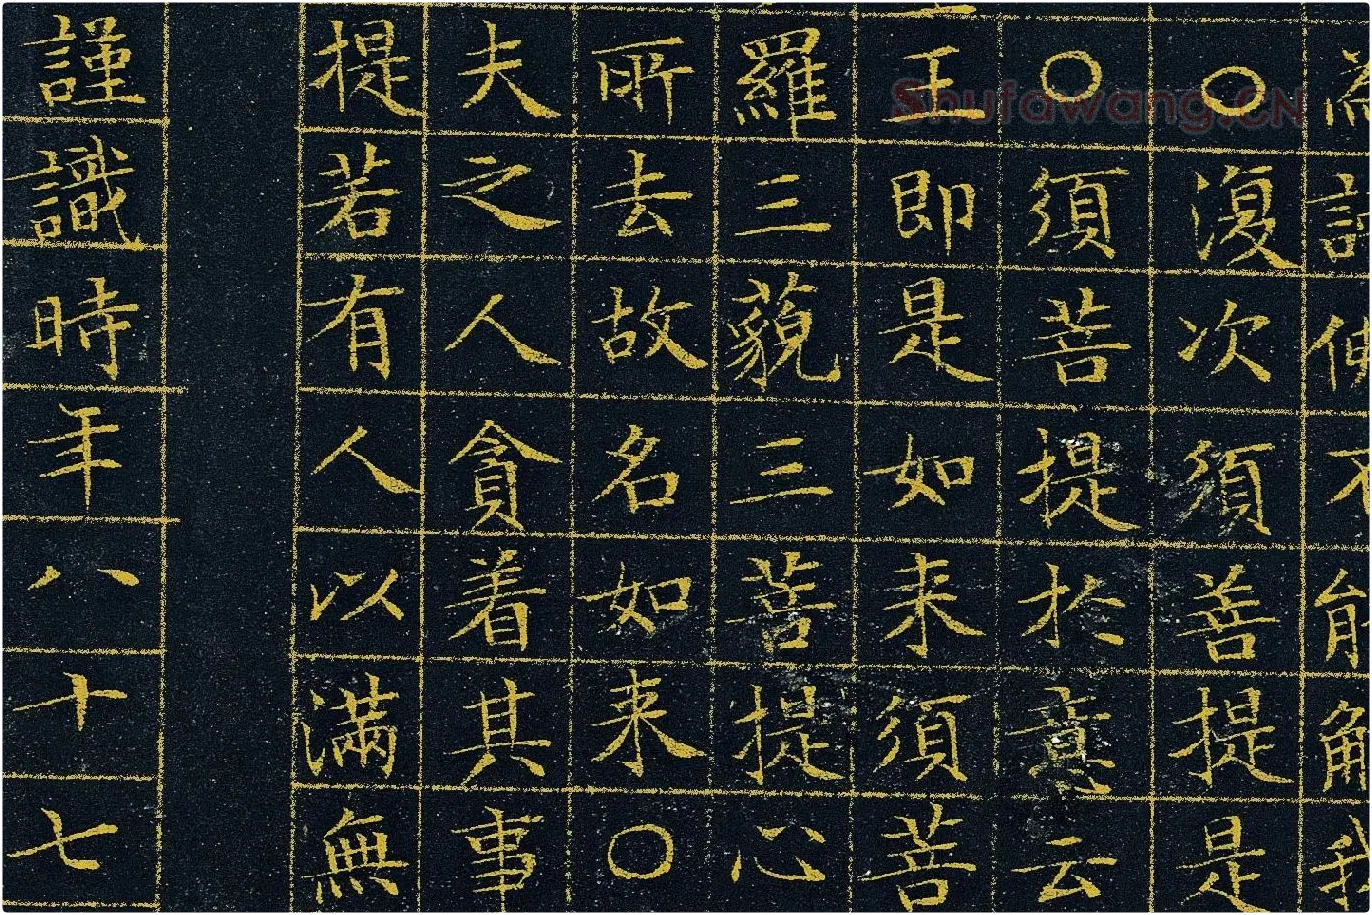 不能解我
○復次須菩提是
○須菩提於意云
王即是如来須菩
羅三藐三菩提心
所去故名如来○
夫之人貪着其事
提若有人以滿無
謹識時年八十七
Shufawang.CN